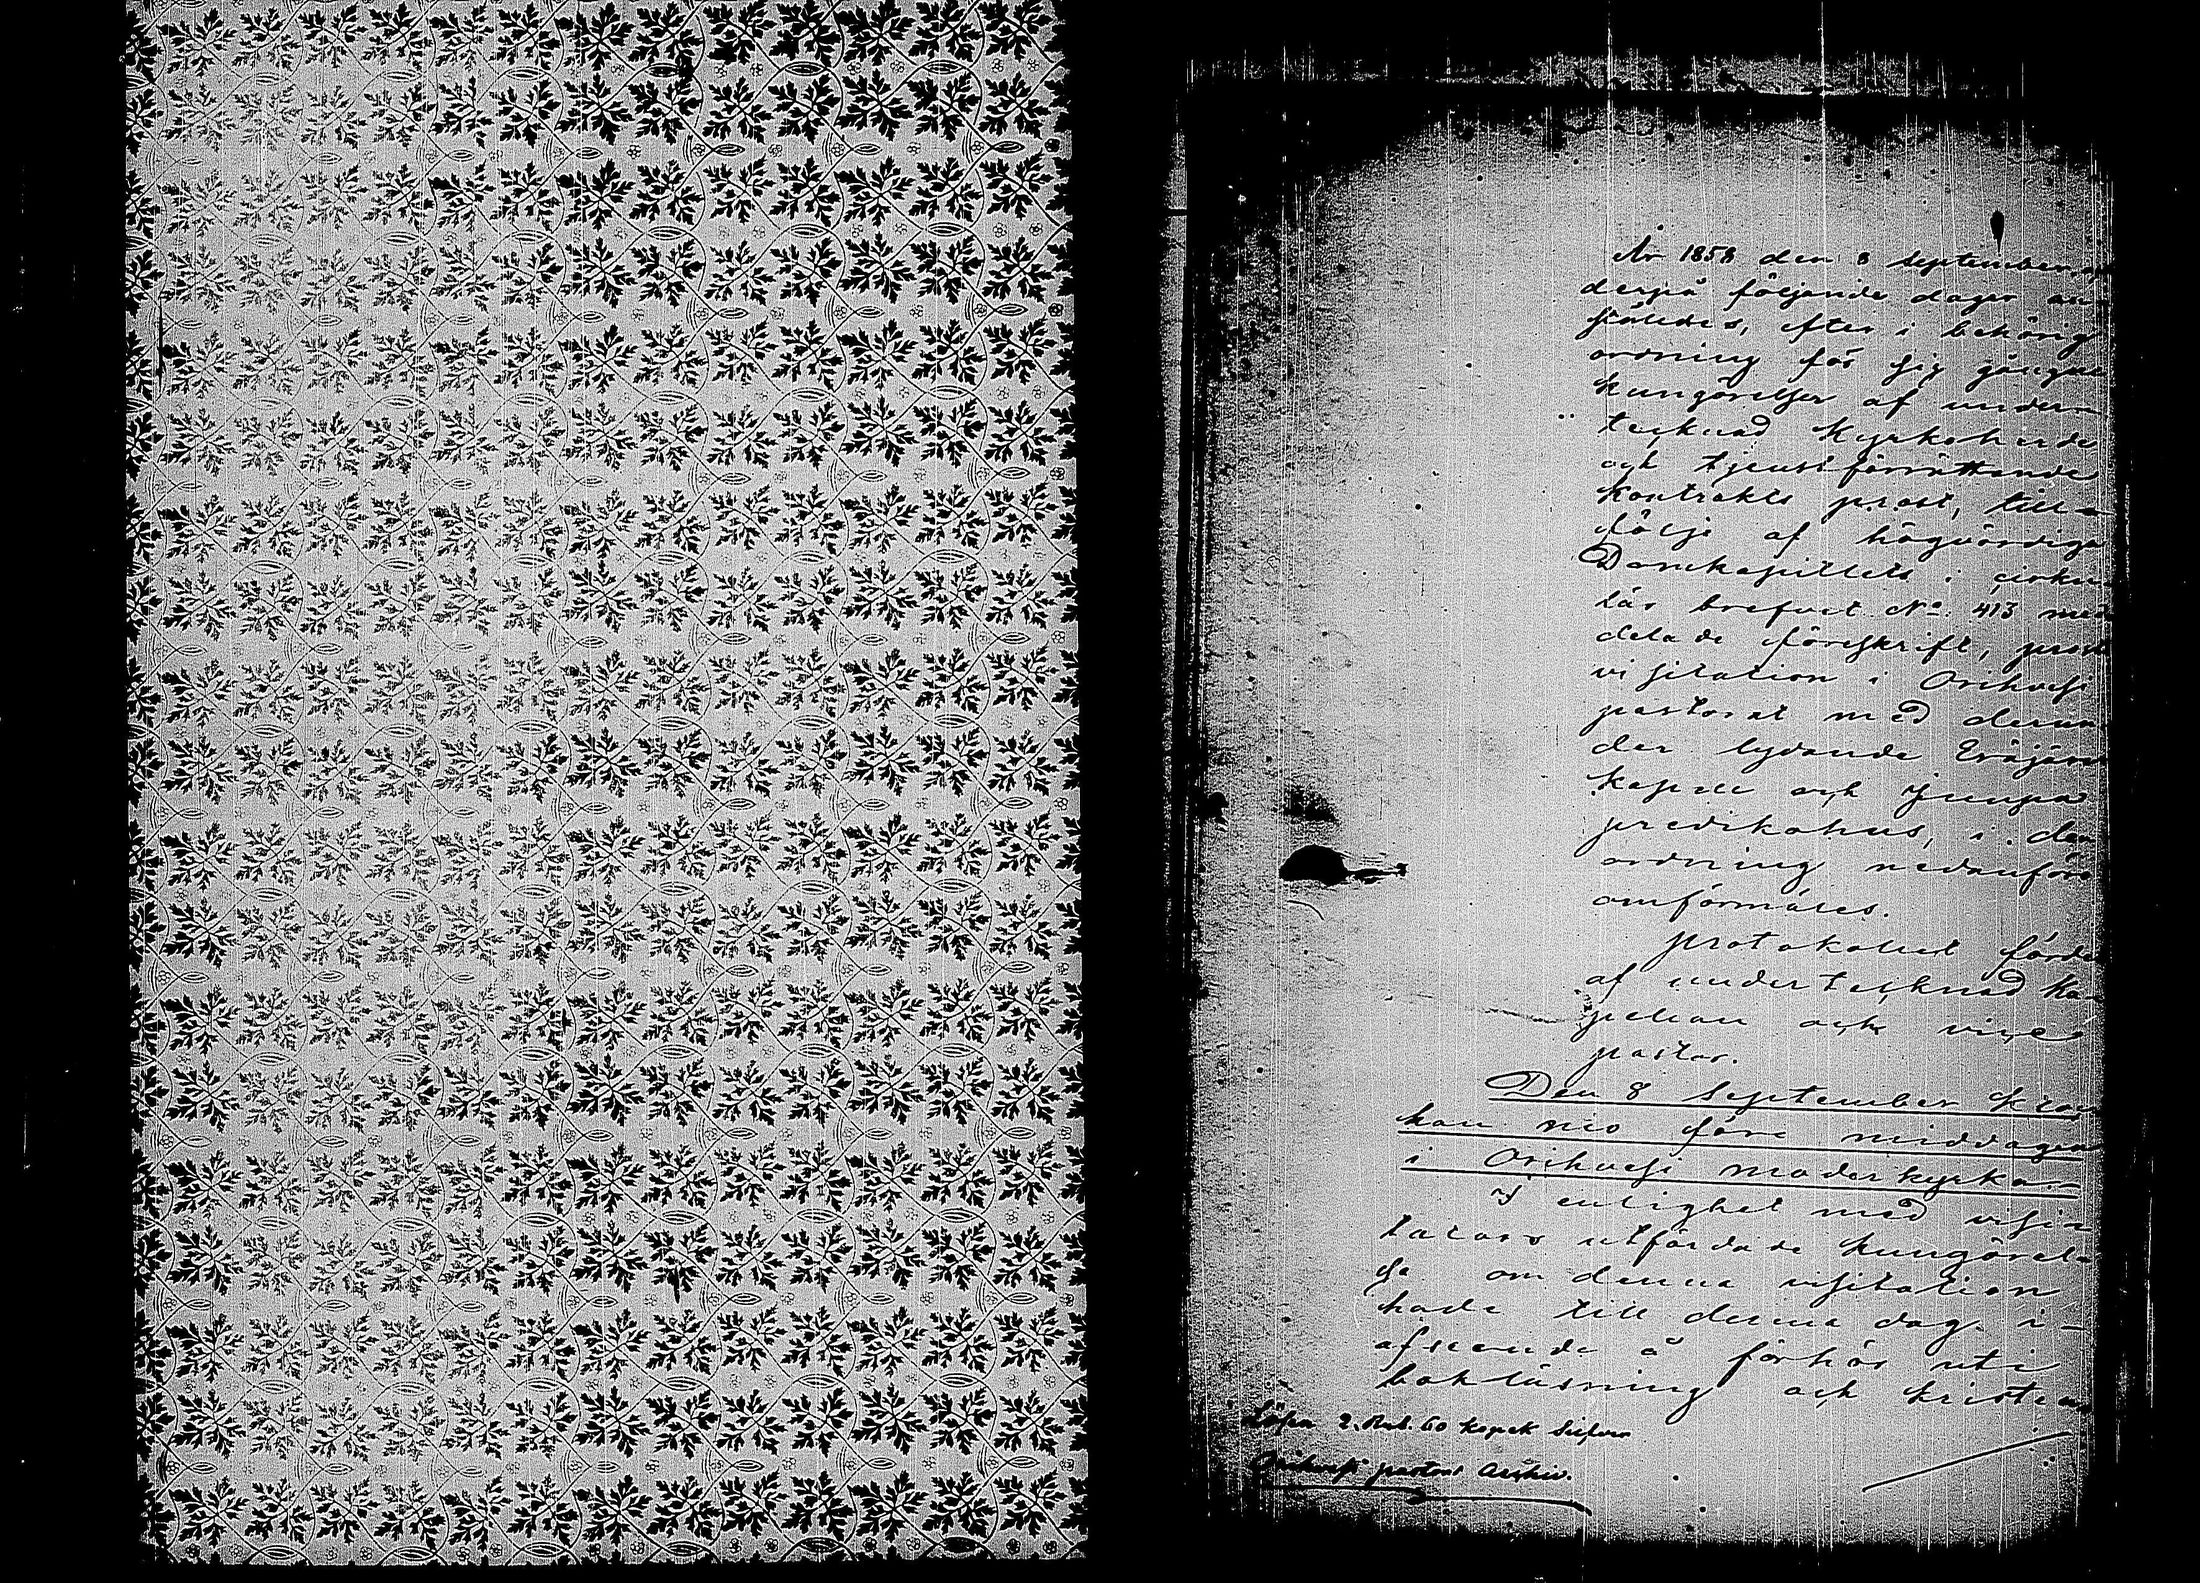 År 1858 den 8 september och
derpå följande dagar an-
ställdes, efter i behörig
ordning för sig gångne
kungörelser af under-
tecknad Kyrkoherde
och tjenstförrättande
Kontrakts prost, till-
följe af högvördige
Domkapitlets i cirku-
lär brefvet No 413 med
delade föreskrift, prost
visitation i Orihvesi
pastorat med derun
der lydande Eräjärvi
Kapell och Juupa
predikohus, i den
ordning nedanföre
omförmäles.
Protokollet fördes
af undertecknad ka-
pellan och vice
pastor.
Den 8 september kloc
kan nio före middagen
i Orihvesi moderkyrka.
I enlighet med visi-
tators utfärdade kungörel-
se om denna visitation
hade till denna dag i-
afseende å förhör uti
bokläsning och kristen
Lösen 2. Rub. 60 Kopek Silfver
Orihvesi pastors Archiv.